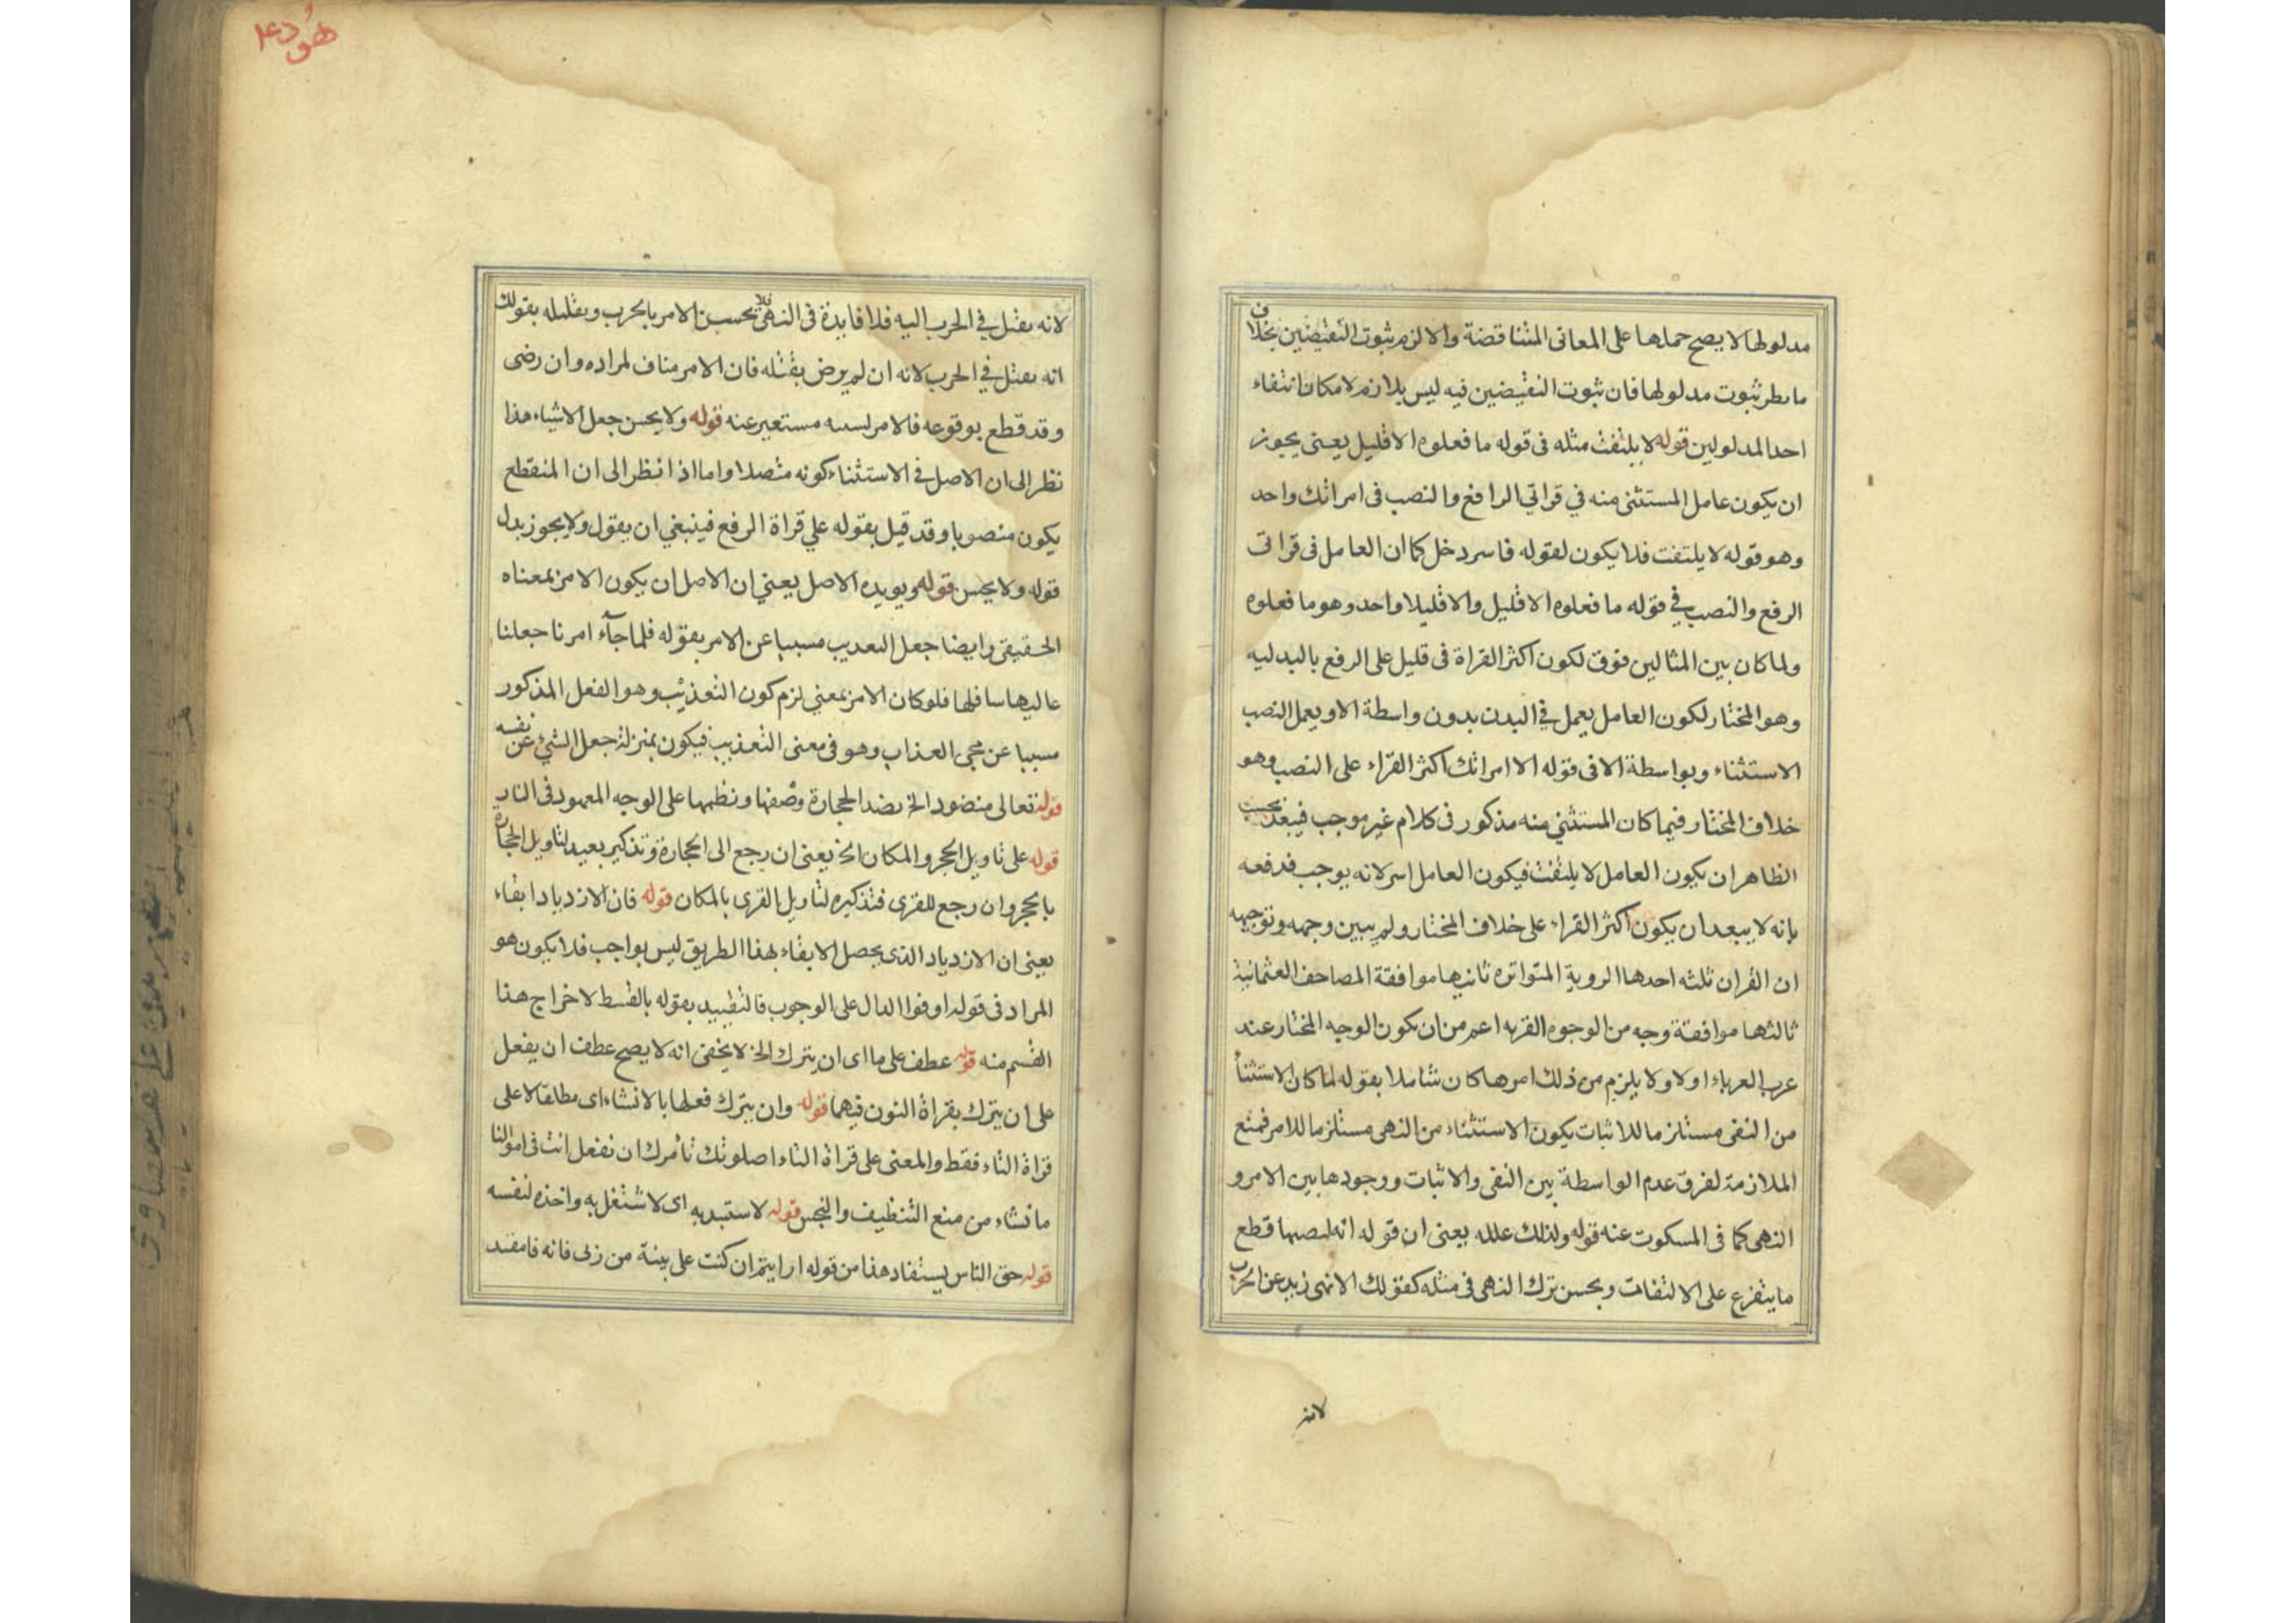 مدلولها لا يصح حملها على المعانى المتناقضة والا لزم ثبوت النقيضين بخلاف
ثبوت مدلولها فان ثبوت النقيضين فيه ليس بلازم لامكان انتفاء
احد المدلولين قوله لا يلتفت مثله فى قوله ما فعلوه الا قليل يعنى يجوز
ان يكون عامل المستثنى منه في قراتي الرافع والنصب فى امراتك واحد
وهو قوله لا يلتفت فلا يكون لقوله فاسر دخل كما ان العامل فى قراتى
الرفع والنصب في قوله ما فعلوه الا قليل والا قليلا واحد وهو ما فعلوه
ولما كان بين المثالين فوق لكون اكثر القراة فى قليل على الرفع بالبدليه
وهو المختار لكون العامل يعمل في البدن بدون واسطة الا ويعمل النصب
الاستثناء وبواسطة الا فى قوله الا امراتك اكثر القراء على النصب وهو
خلاف المختار فيما كان المستثنى منه مذكور فى كلام غير موجب فيبعد بحسب
الظاهر ان يكون العامل لا يلتفت فيكون العامل اسر لانه يوجب فدفعه
بانه لا يبعد ان يكون اكثر القراء على خلاف المختار ولم يبين وجهه وتوجيهه
ان القران ثلثه احدها الروية المتواتره ثانيها موافقة المصاحف العثمانية
ثالثها موافقة وجه من الوجوه اعم من ان يكون الوجه المختار عند
عرب العرباء اولا ولا يلزم من ذلك امرها كان شاملا بقوله لما كان الاستثنأ
من النفى مستلزما للاثبات يكون الاستثناء من النهى مستلزما للامر فمنع
الملازمة لفرق عدم الواسطة بين النفى والاثبات ووجودها بين الامر و
النهى كما فى المسكوت عنه قوله ولذلك علله يعنى ان قوله انه قطع
ما يتفرع على الالتفات ويحسن ترك النهى فى مثله كقولك الا نهى زيد عن الحرب
لانه
هود ع
لانه يقتل في الحرب اليه فلا فايدة فى النهى فلا يحسن الامر بالحرب وتعليله بقولك
انه يقتل في الحرب لانه ان لم يرض بقتله فان الامر مناف لمراده وان رضى
وقد قطع بوقوعه فالامر مستعير عنه قوله ولا يحسن جعل الاشياء هذا
نظر الى ان الاصل في الاستثناء كونه متصلا واما اذا نظر الى ان المنقطع
يكون منصوبا وقد قيل بقوله علي قراة الرفع فينبغي ان يقول ولا يجوز بدل
قوله ولا يحسن قوله ويويده الاصل يعني ان الاصل ان يكون الامر بمعناه
الحقيقى وايضا جعل التعديب مسببا عن الامر بقوله فلما جآء امرنا جعلنا
عاليها سافلها فلو كان الامر بمعني لزم كون التعذيب وهو الفعل المذكور
مسببا عن مجى العذاب وهو فى معنى التعذيب فيكون بمنزلة جعل الشئ عن نفسه
قوله تعالى منضود الخ نضد الحجارة وصفها ونظمها على الوجه المعهود فى الناب
قوله على تاويل الحجر والمكان الخ يعنى ان رجع الى الحجارة وتذكير بعيد لتاويل الحجارة
بالحجر وان رجع للقرى فتذكيره لتاويل القرى بالمكان قوله فان الازدياد ابفاء
يعنى ان الازدياد الذى يحصل الابفاء بهذا الطريق ليس بواجب فلا يكون هو
المراد فى قوله اوفوا الدال على الوجوب فالتقييد بقوله بالقسط لاخراج هذا
القسم منه قوله عطف على ما اى ان يترك الخ لا يخفى انه لا يصح عطف ان يفعل
على ان يترك بقراة النون فيهما قوله وان يترك فعلها بالانشاء اى مطلقا لا على
قراة التاء فقط والمعنى على قراة التاء اصلوتك تأمرك ان تفعل انت فى اموالنا
ما تشاء من منع التنظيف والنجس قوله لاستبد به اى لا شتغل به واخذه لنفسه
قوله حق الناس يستفاد هذا من قوله ارايتم ان كنت على بينة من ربى فانه